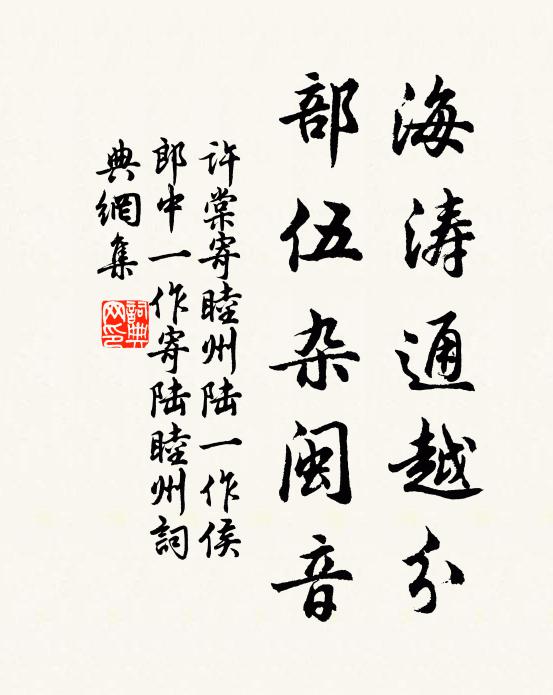 海涛通越分
部伍杂闽音
许棠寄睦州陆一作侯
郎中一作寄陆睦州詞
典網集
詞典網印